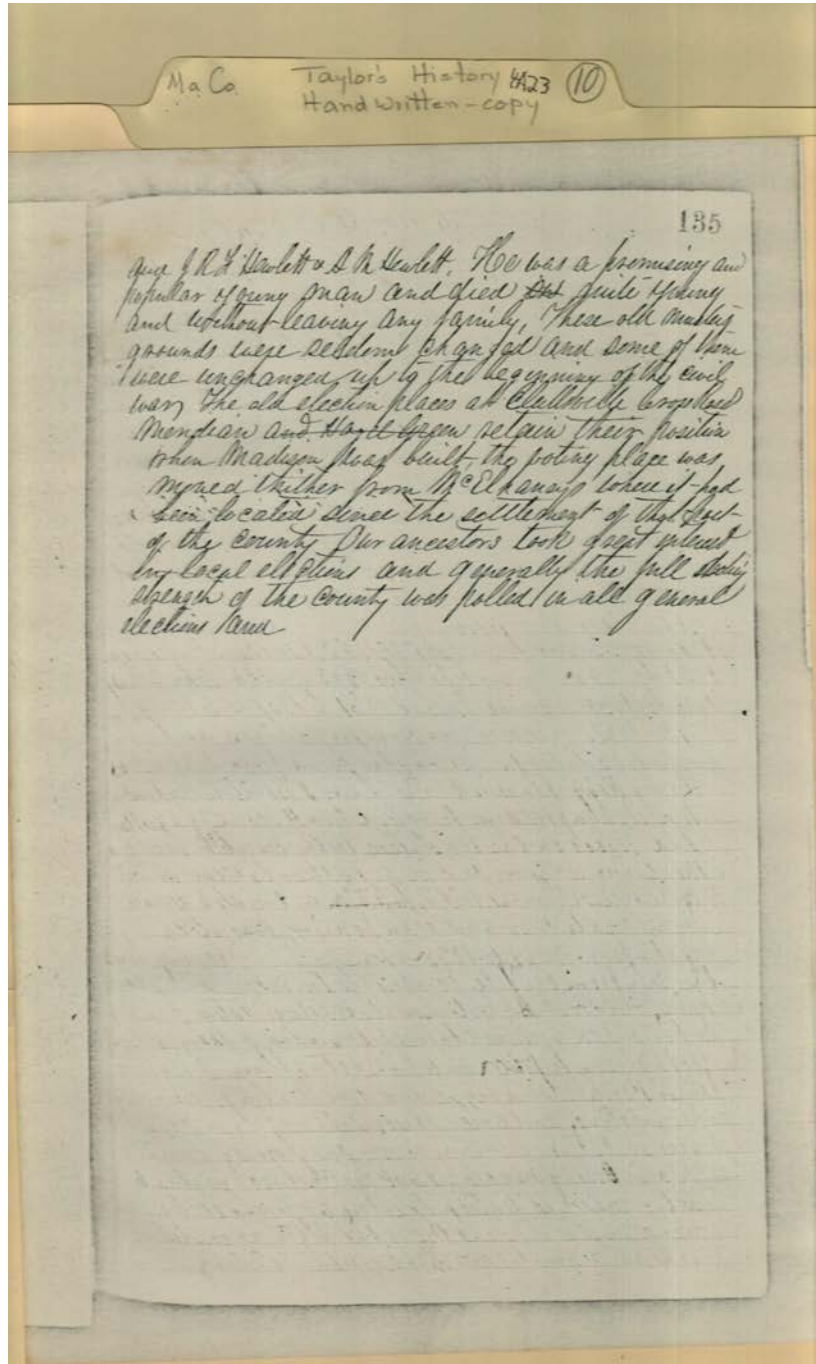 Ma Co. Taylor's History 4A23 10
Handwritten-copy
135
and J R H Hewlett & A M Hewlett. He was a promising and
popular young man and died quite young
and without leaving any family, These old muster
grounds were seldom changed and some of them
were unchanged up to the beginning of the civil
war, The old election places at Cluttsville
Meridian and Hazel Green retain their position
when Madison was built, the voting place was
moved thither from McElhaneys where it had
been located since the settlement of that part
of the county Our ancestors took great interest
in local elections and generally the full voting
strength of the county was polled in all general
elections and